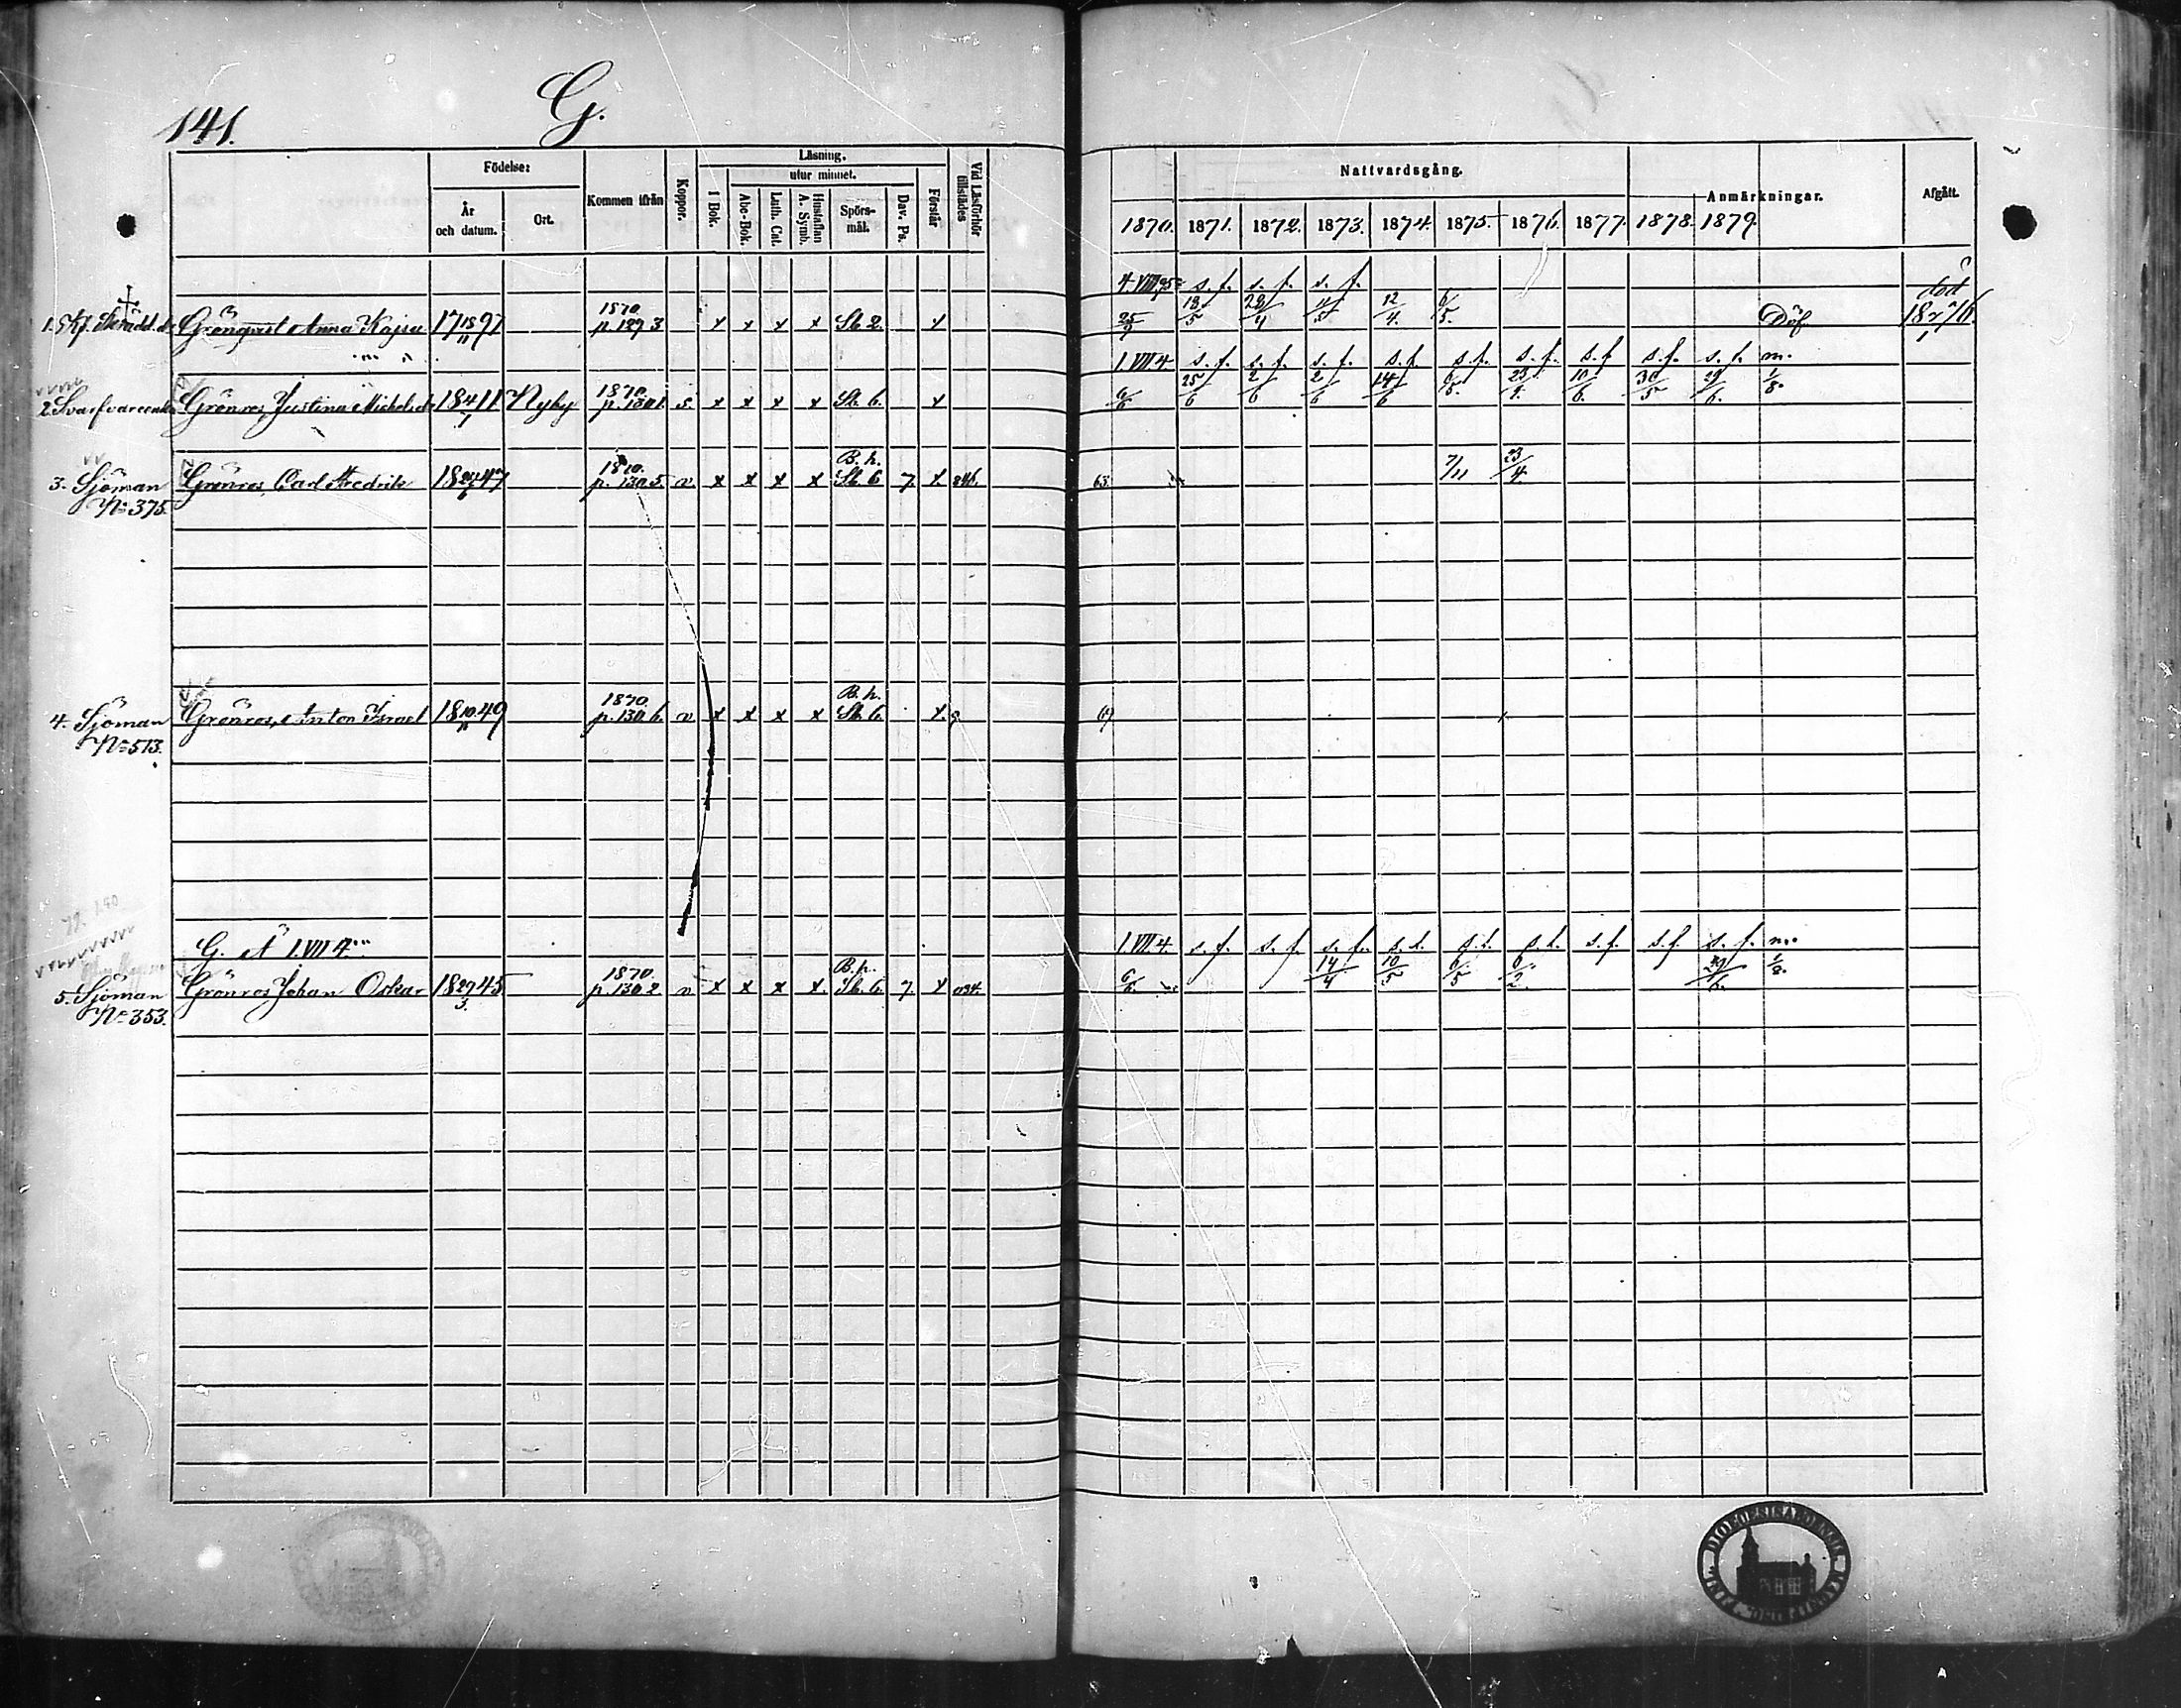 141.
G.
Födelse:
År och datum.
Ort.
Kommen ifrån
Koppor.
Läsning.
utur minnet.
I Bok.
Abc-Bok.
Luth. Cat.
Hustaflan A. Symb.
Spörsmål.
Dav. Ps.
Förstår
Vid Läsförhör tillstädes
Nattvardsgång.
Anmärkningar.
Afgått.
1870. 1871. 1872. 1873. 1874. 1875. 1876. 1877. 1878. 1879.
4. VIII. s. f. s. f. s. f. död
1. Grönqvist Anna Kajsa 17 18/11 97 1870 p. 129 3 x x x x St. 2. x 25/9 18/5 28/4 12/4. 6/5. Döf 18 7/1 76
1. VII. 4 s. f. s. f. s. f. s. f. s. f. s. f. s. f. s. f. s. f. m.
2. Grönros Justina Michelsdr 18 4/7 11 Nyby 1870. p. 130 1. s. x x x x St. 6. x 6/6 25/6 2/6 2/6 14/6 6/5. 23/4. 10/6. 30/5 29/6. 1/8.
3. Sjöman Grönros, Carl Fredrik 18 47 1870. p. 130 5. v. x x x x B. h. St. 6 7. x 63. 7/11 23/4.
No 375.
4. Sjöman Grönros, Anton Israel 18 10/11 49 1870. p. 130 6. v x x x x B. h. St. 6. x
No 513.
G. A I. VII 4
1. VII. 4. s. f. s. f. s. f. s. f. s. f. s. f. s. f. s. f. s. f. m.
5. Sjöman Grönros Johan Oskar 18 29/3. 45 1870. p. 130 2 v. x x x x. B. h. St. 6. 7. x 6/6. 14/4 10/5 6/5 6/2. 29/6. 1/8.
No 353.